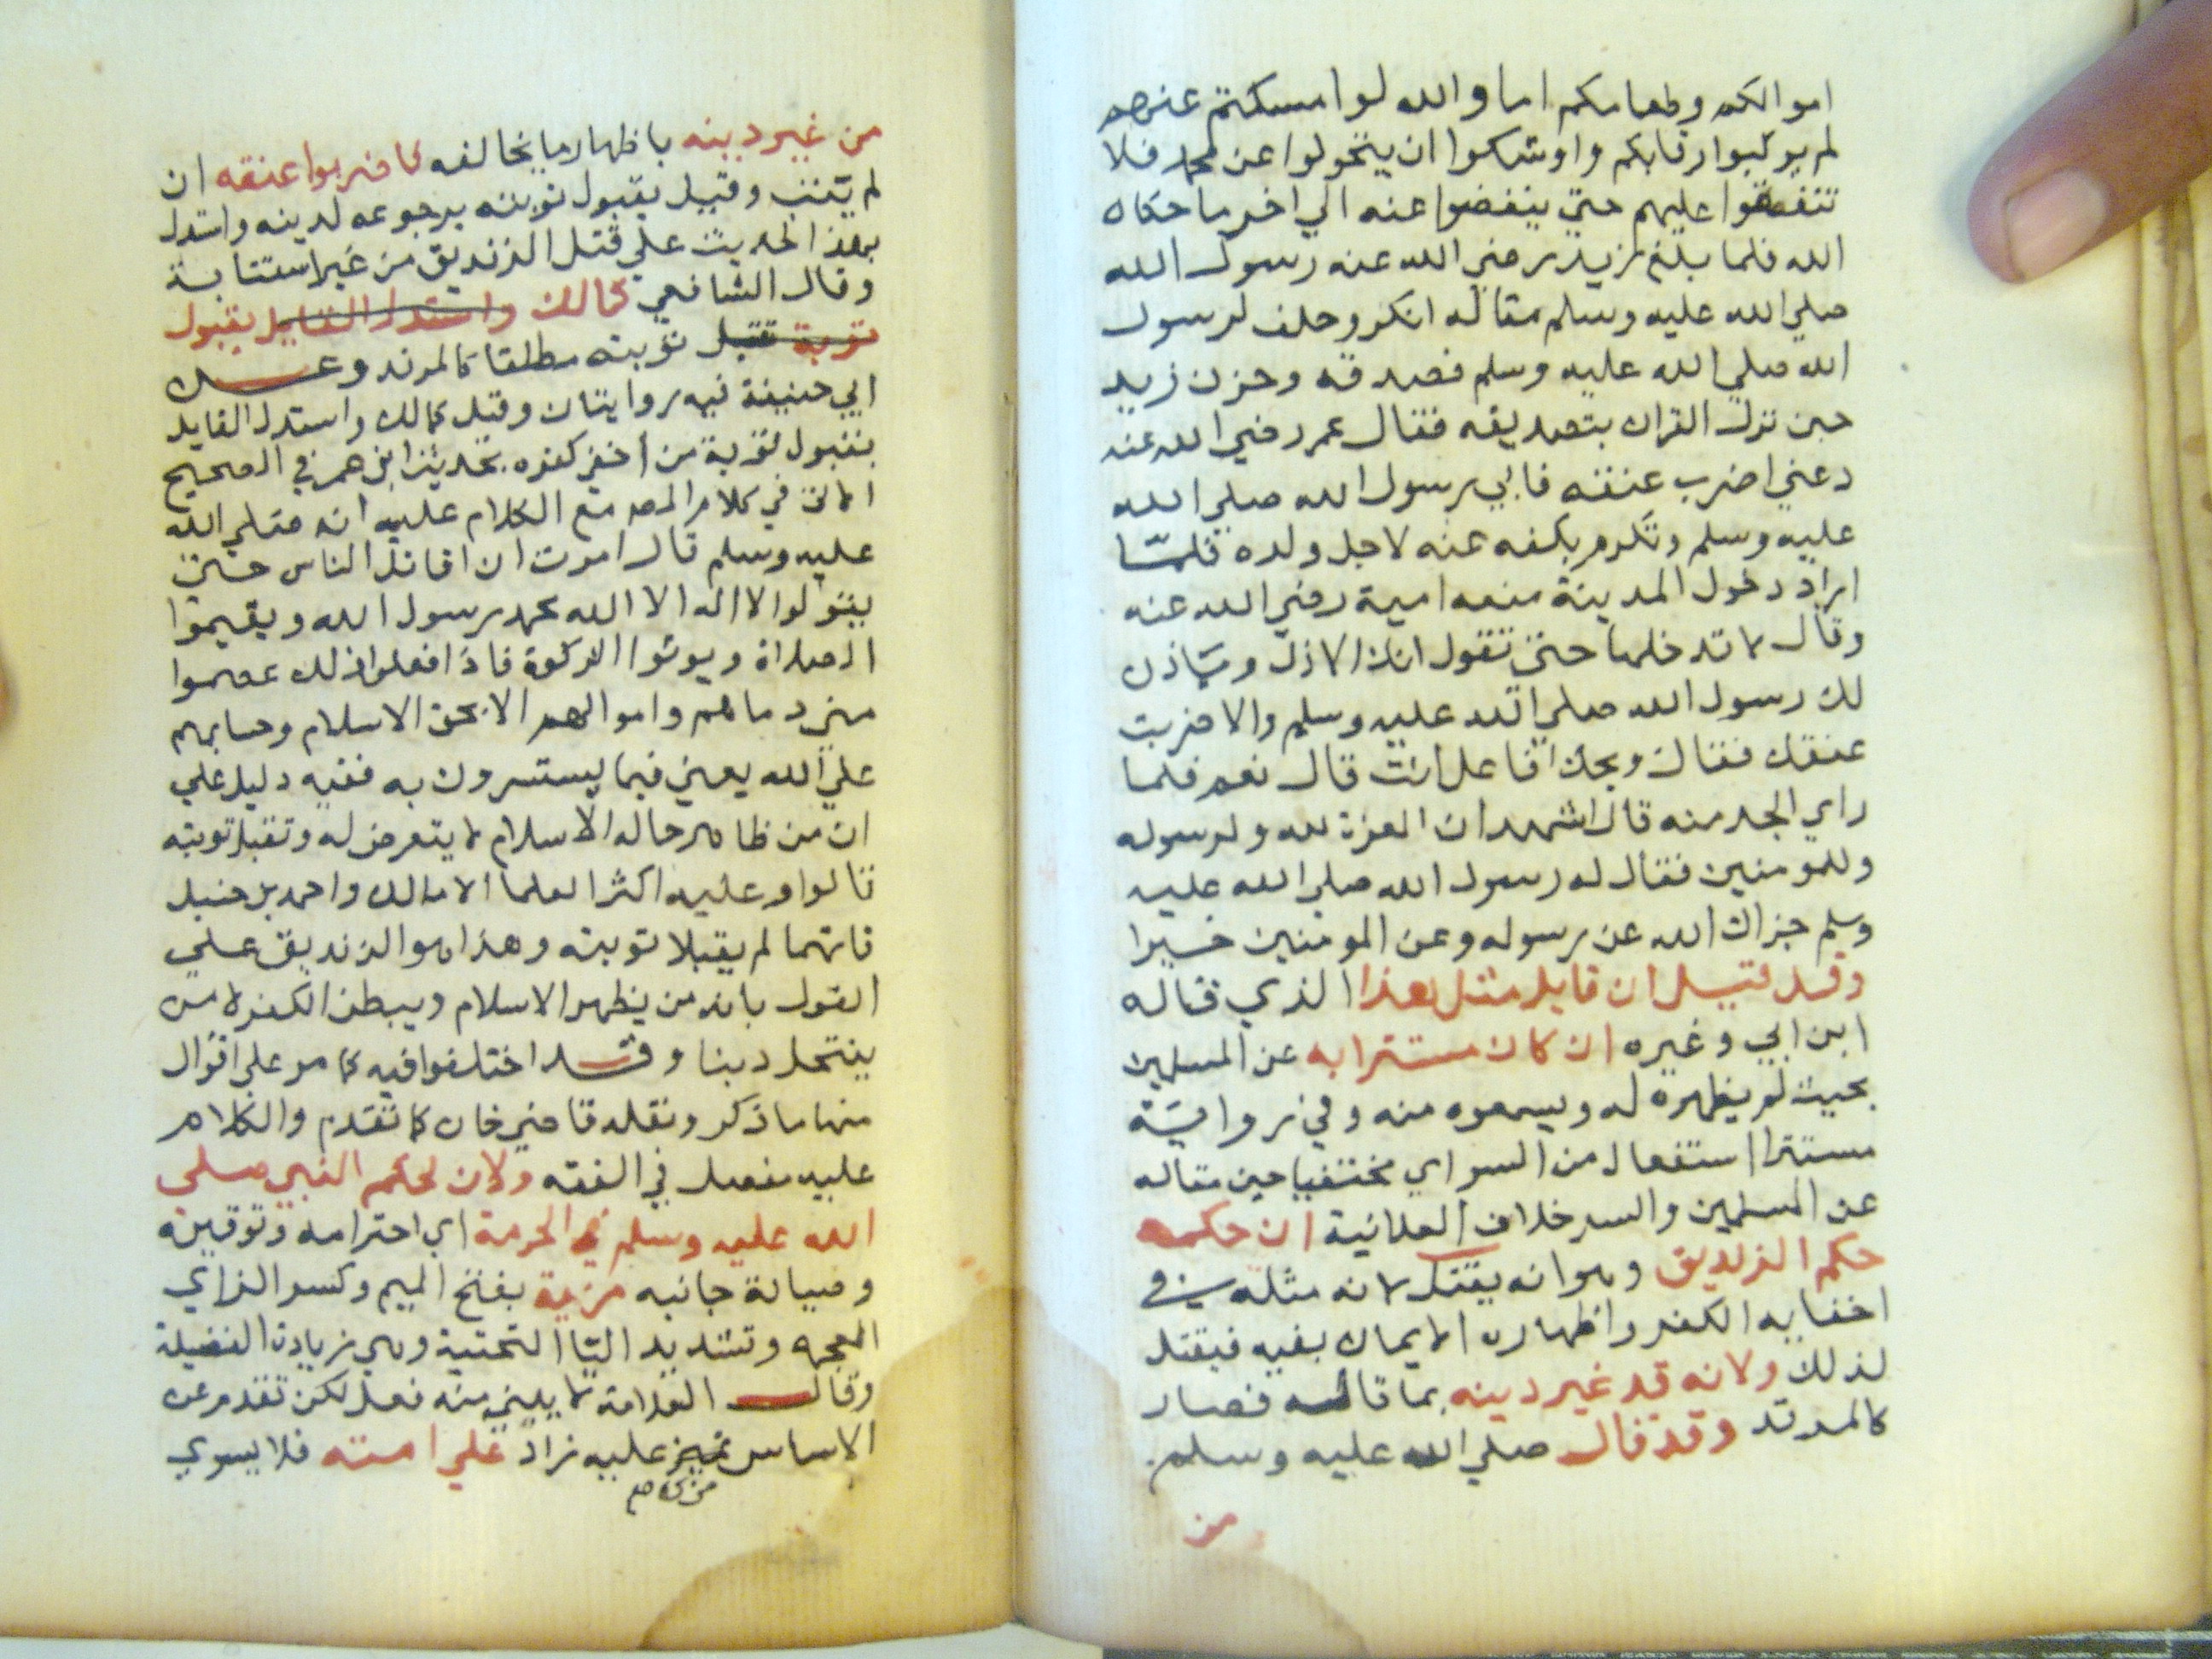 اموالكم وطعامكم اما والله لو امسكتم عنهم
لم يركبوا رقابكم واوشكوا ان يتحولوا عن محمد فلا
تنفقوا عليهم حتي ينفضوا عنه الي اخر ما حكاه
الله فلما بلغ زيد رضي الله عنه رسول الله
صلي الله عليه وسلم مقاله انكر وحلف لرسول
الله صلي الله عليه وسلم فصدقه وحزن زيد
حين نزل القران بتصديقه فقال عمر رضي الله عنه
دعني اضرب عنقه فابي رسول الله صلي الله
عليه وسلم وتكرم بكفه عنه لاجل ولده فلما
اراد دخول المدينة منعه امية رضي الله عنه
وقال لا تدخلها حتي تقول انك الاذل وياذن
لك رسول الله صلي الله عليه وسلم والا ضربت
عنقك فقال ويحك افاعل انت قال نعم فلما
راي الجد منه قال اشهد ان العزة لله ولرسوله
وللمومنين فقال له رسول الله صلي الله عليه
وسلم جزاك الله عن رسوله وعن المومنين خيرا
وقد قيل ان قايل مثل هذا الذي قاله
ابن ابي وغيره ان كان مستترا به عن المسلمين
بحيث لم يظهره له ويسمعوه منه وفي رواية
مستترا استفعال من السر اي مختفيا حين مقاله
عن المسلمين والسر خلاف العلانية ان حكمه
حكم الزنديق وهو انه يقتل لانه مثله في
اخفايه الكفر واظهاره الايمان بفيه فيقتل
لذلك ولانه قد غير دينه بما قاله فصار
كالمرتد وقد قال صلي الله عليه وسلم
من
من غير دينه باظهار ما يخالفه فاضربوا عنقه ان
لم يتب وقيل بقبول توبته برجوعه لدينه واستدل
بهذا الحديث علي قتل الزنديق من غير استتابة
وقال الشافعي كمالك واستدل القايل بقبول
توبة تقبل توبته مطلقا كالمرتد وعن
ابي حنيفة فيه روايتان وقيل كمالك واستدل القايل
بقبول توبة من اخفي كفره بحديث ابن عمر في الصحيح
الاتي في كلام المص مع الكلام عليه انه صلي الله
عليه وسلم قال امرت ان اقاتل الناس حتي
يقولوا لا اله الا الله محمد رسول الله ويقيموا
الصلاة ويوتوا الزكوة فاذا فعلوا ذلك عصموا
مني دماهم واموالهم الا بحق الاسلام وحسابهم
علي الله يعني فيما يستسرون به ففيه دليل علي
ان من ظاهر حاله الاسلام لا يتعرض له وتقبل توبته
قالوا وعليه اكثر العلما الا مالك واحمد بن حنبل
فانهما لم يقبلا توبته وهذا هو الزنديق علي
القول بانه من يظهر الاسلام ويبطن الكفر لا من
ينتحل دينا وقد اختلفوا فيه كما مر علي اقوال
منها ما ذكر ونقله قاضي خان كما تقدم والكلام
عليه مفصل في الفقه ولان لحكم النبي صلي
الله عليه وسلم في الحرمة اي احترامه وتوقيره
وصيانة جانبه مزية بفتح الميم وكسر الزاي
المعجمه وتشديد اليا التحتية وهي زيادة الفضيلة
وقال العلامة لا يبني منه فعل لكن تقدم عن
الاساس تميز عليه زاد علي امته فلا يسوي